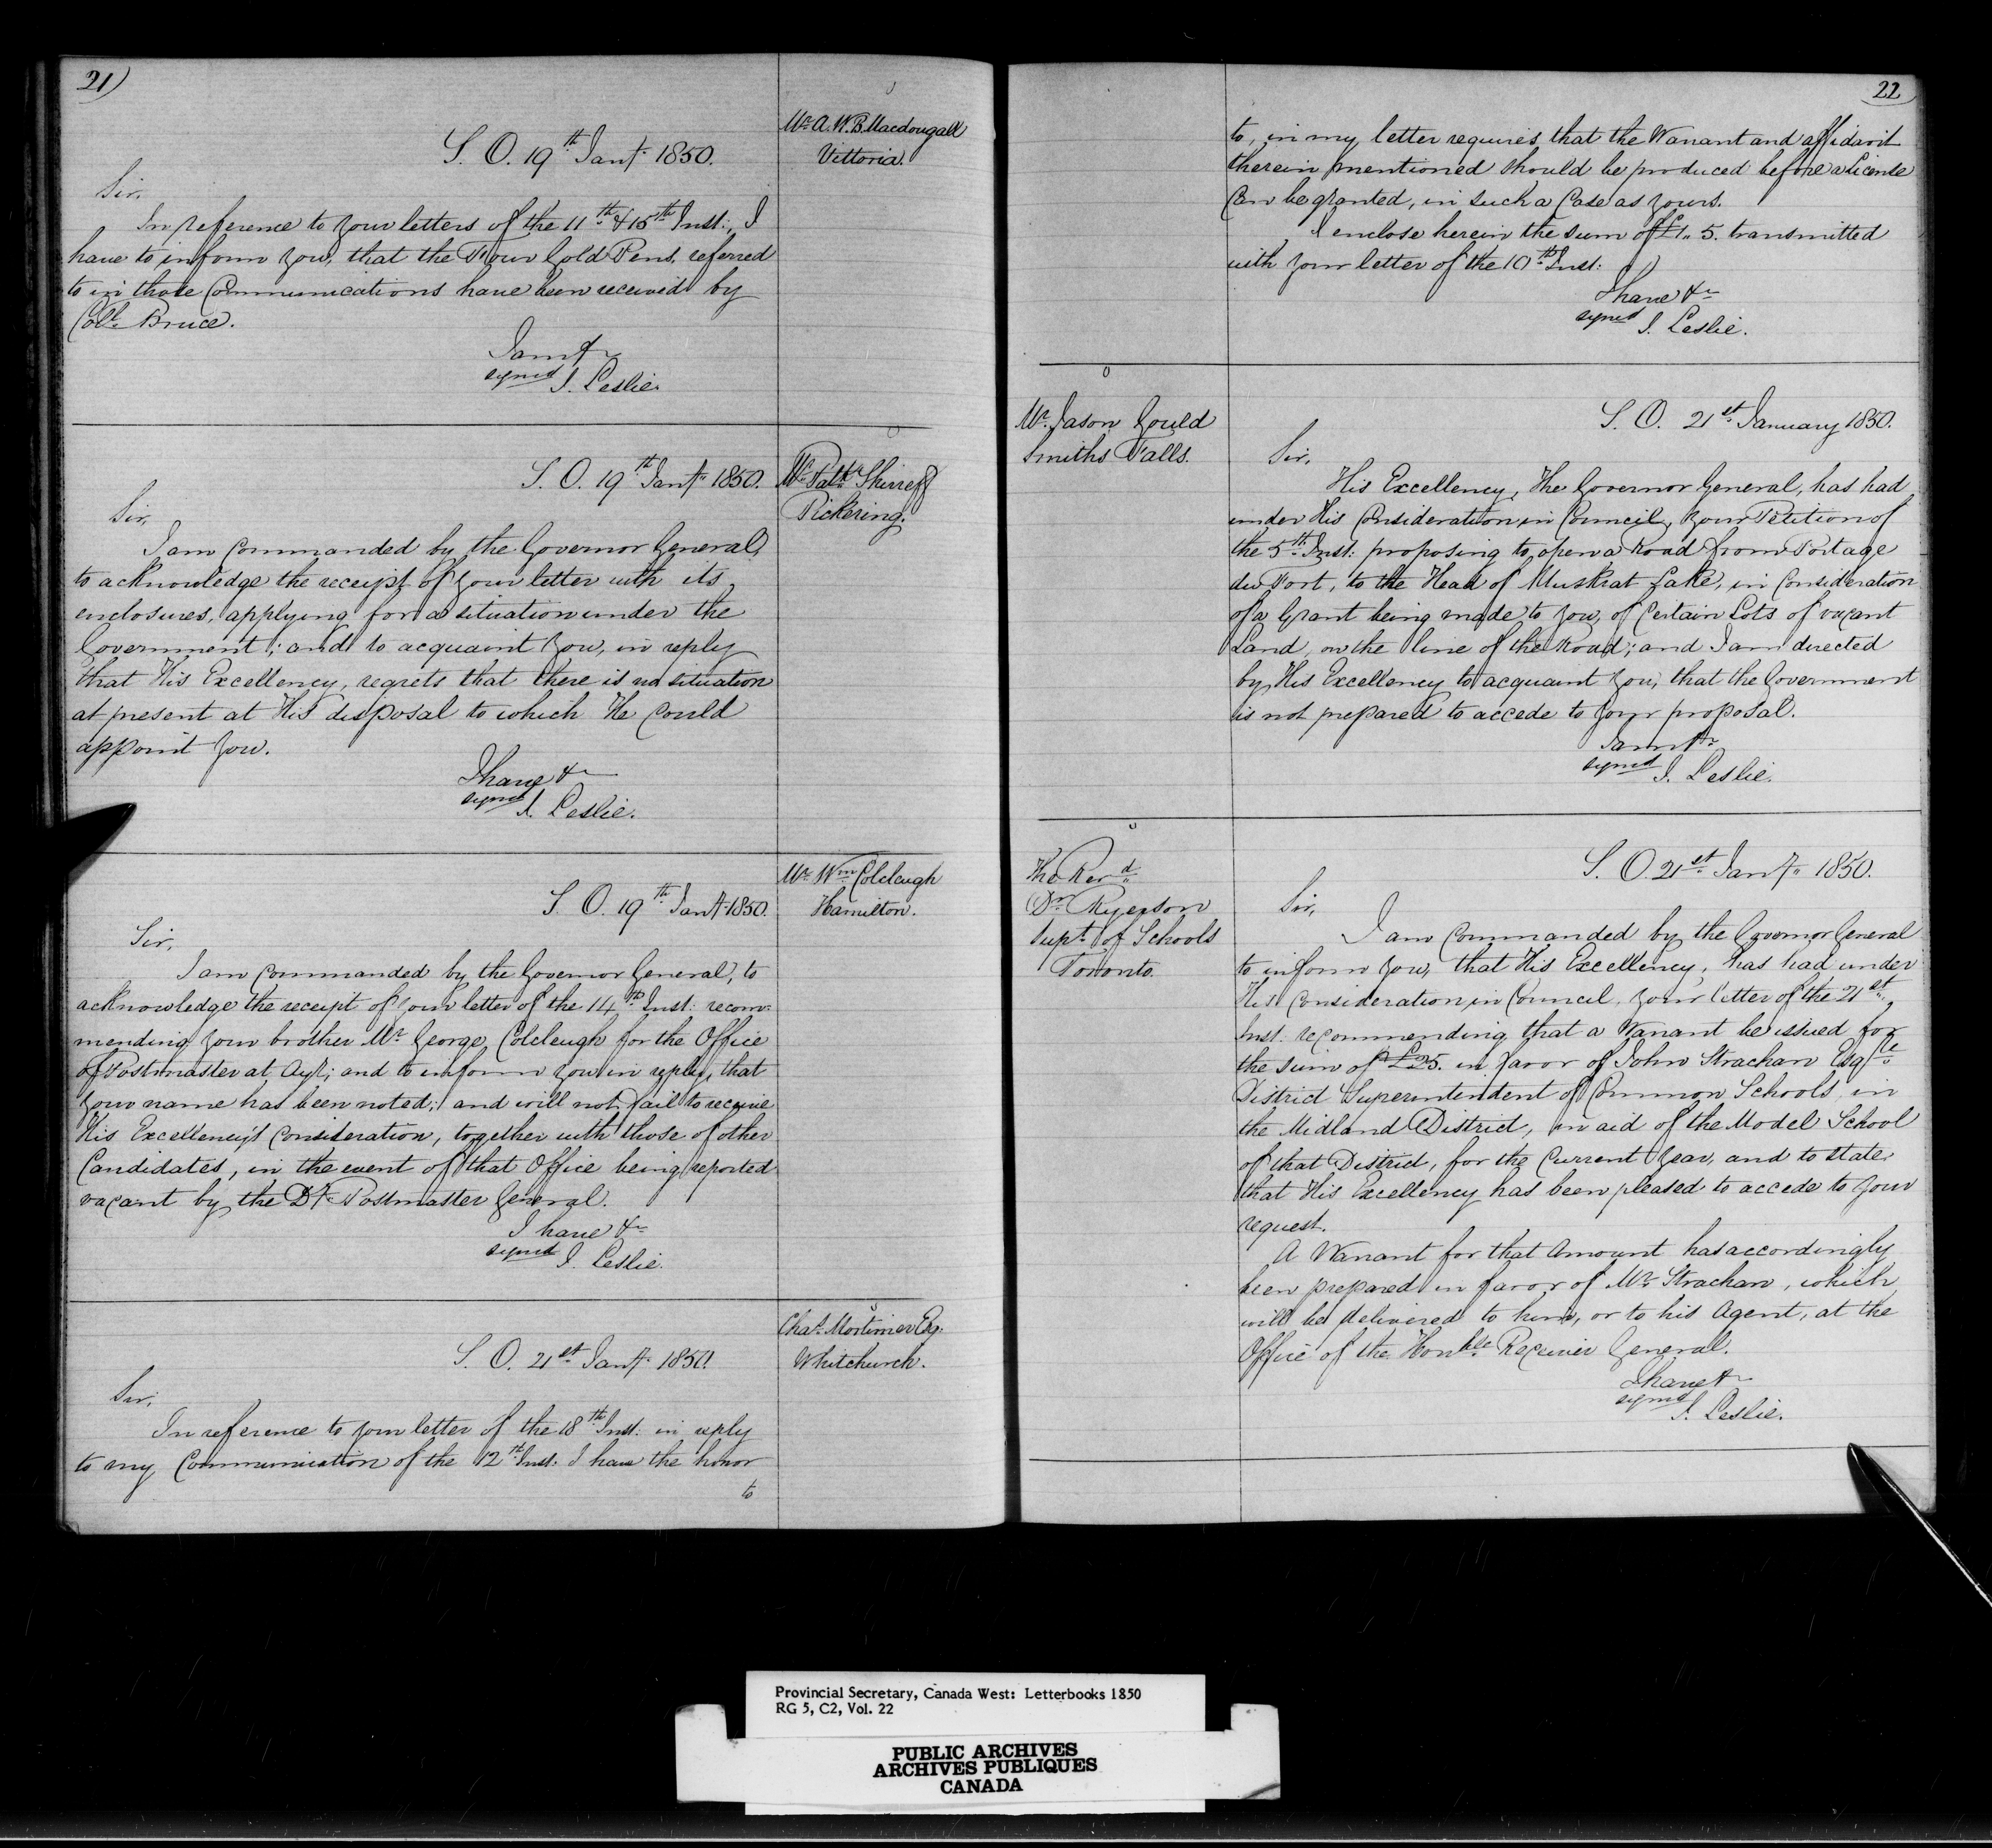 21)
Mr. A. W. B. Macdougall
Vittoria.
S. O. 19th Jany. 1850.
Sir,
In reference to your letters of the 11th & 15th Inst:, I
have to inform you, that the Four Gold Pens, referred
to in those Communications have been received by
Coll. Bruce.
I am &c
signed J. Leslie.
Mr. Patk. Shirreff
Pickering.
S. O. 19th Jany. 1850.
Sir,
I am Commanded by the Governor General,
to acknowledge the receipt of your letter with its
enclosures, applying for a situation under the
Government; and to acquaint you, in reply
that His Excellency, regrets that there is no situation
at present at His disposal to which He could
appoint you.
I have &c
signed J. Leslie.
Mr. Wm. Colcleugh
Hamilton.
S. O. 19th Jany. 1850.
Sir,
I am Commanded by the Governor General, to
acknowledge the receipt of your letter of the 14th Inst: recom-
mending your brother Mr. George Colcleugh for the Office
of Postmaster at Ayr; and to inform you in reply, that
your name has been noted; and will not fail to receive
His Excellency's Consideration, together with those of other
Candidates, in the event of that Office being reported
vacant by the Dy. Postmaster General.
I have &c
signed J. Leslie.
Chas. Mortimer Esq.
Whitchurch.
S. O. 21st Jany. 1850.
Sir,
In reference to your letter of the 18th Inst: in reply
to my Communication of the 12th Inst: I have the honor
to
22
to, in my letter requires that the Warrant and affidavit
therein mentioned should be produced before a License
Can be granted, in such a Case as yours.
I enclose herein the sum of £1,, 5. transmitted
with your letter of the 10th Inst:
I have &c
signed J. Leslie.
Mr. Jason Gould
Smiths Falls.
S. O. 21st January 1850.
Sir,
His Excellency, The Governor General, has had
under His Consideration in Council, your Petition of
the 5th Inst: proposing to open a Road from Portage
du Fort, to the Head of Muskrat Lake, in Consideration
of a Grant being made to you, of Certain Lots of vacant
Land, on the line of the Road; and I am directed
by His Excellency to acquaint you, that the Government
is not prepared to accede to your proposal.
I am &c
signed J. Leslie.
The Revd.
Dr. Ryerson
Supt. of Schools
Toronto.
S. O. 21st Jany. 1850.
Sir,
I am Commanded by the Governor General
to inform you, that His Excellency, has had under
His Consideration, in Council, your letter of the 21st
Inst. recommending that a Warrant be issued for
the sum of £25. in favor of John Strachan Esqre.
District Superintendent of Common Schools, in
the Midland District, in aid of the Model School
of that District, for the Current Year, and to state
that His Excellency has been pleased to accede to your
request.
A Warrant for that Amount has accordingly
been prepared in favor of Mr. Strachan, which
will be delivered to him, or to his Agent, at the
Office of the Honble. Receiver General.
I have &c
signed J. Leslie.
Provincial Secretary, Canada West: Letterbooks 1850
RG 5, C2, Vol. 22
PUBLIC ARCHIVES
ARCHIVES PUBLIQUES
CANADA